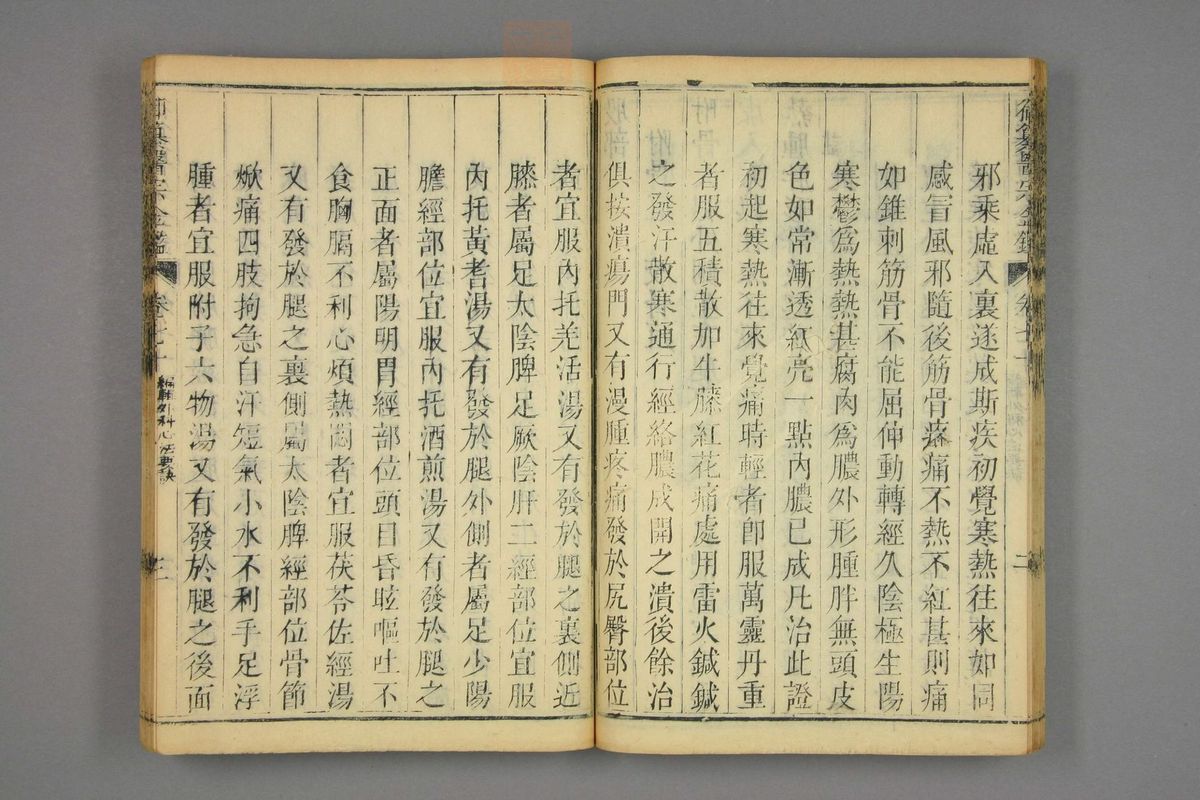 邪乘虛入裏遂成斯疾初覺寒熱往來如同
感冒風邪隨後筋骨疼痛不熱不紅甚則痛
如錐刺筋骨不能屈伸動轉經久陰極生陽
寒鬱為熱熱甚腐肉為膿外形腫胖無頭皮
色如常漸透紅亮一點內膿已成凡治此證
初起寒熱往來覺痛時輕者卽服萬靈丹重
者服五積散加牛膝紅花痛處用雷火鍼鍼
之發汗散寒通行經絡膿成開之潰後餘治
俱按潰瘍門又有漫腫疼痛發於尻臀部位
者宜服內托羌活湯又有發於腿之裏側近
膝者屬足太陰脾足厥陰肝二經部位宜服
內托黃耆湯又有發於腿外側者屬足少陽
膽經部位宜服內托酒煎湯又有發於腿之
正面者屬陽明胃經部位頭目昏眩嘔吐不
食胸膈不利心煩熱悶者宜服茯苓佐經湯
又有發於腿之裏側屬太陰脾經部位骨節
焮痛四肢拘急自汗短氣小水不利手足浮
腫者宜服附子六物湯又有發於腿之後面
御纂醫宗金鑑 卷七十 編輯外科心法要訣 二